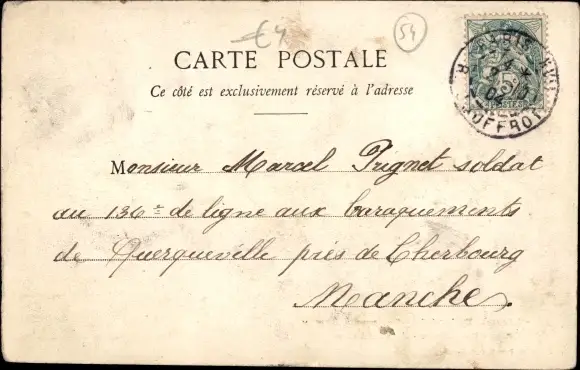 €4
54
CARTE POSTALE
Ce côté est exclusivement réservé à l'adresse
PARIS
Monsieur Marcel Prignet soldat
au 136e de ligne aux baraquements
de Querqueville près de Cherbourg
Manche.